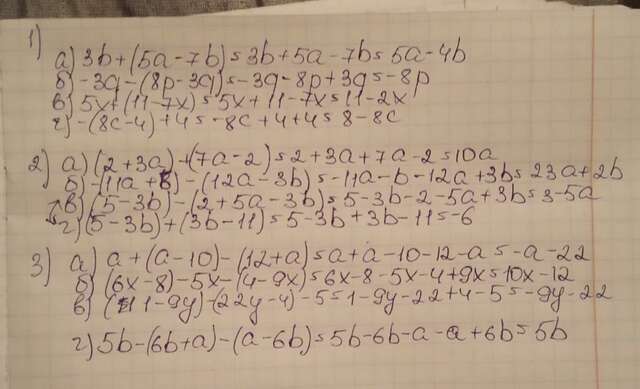 1)
а) 3b+(5a-7b)=3b+5a-7b=5a-4b
б) -3q-(8p-3q)=-3q-8p+3q=-8p
в) 5x+(11-7x)=5x+11-7x=11-2x
г) -(8c-4)+4=-8c+4+4=8-8c
2) а) (2+3a)+(7a-2)=2+3a+7a-2=10a
б) -(11a+b)-(12a-3b)=-11a-b-12a+3b=23a+2b
в) (5-3b)-(2+5a-3b)=5-3b-2-5a+3b=3-5a
г) (5-3b)+(3b-11)=5-3b+3b-11=-6
3) а) a+(a-10)-(12+a)=a+a-10-12-a=-a-22
б) (6x-8)-5x-(4-9x)=6x-8-5x-4+9x=10x-12
в) (1-9y)-(22y-4)-5=1-9y-22+4-5=-9y-22
г) 5b-(6b+a)-(a-6b)=5b-6b-a-a+6b=5b